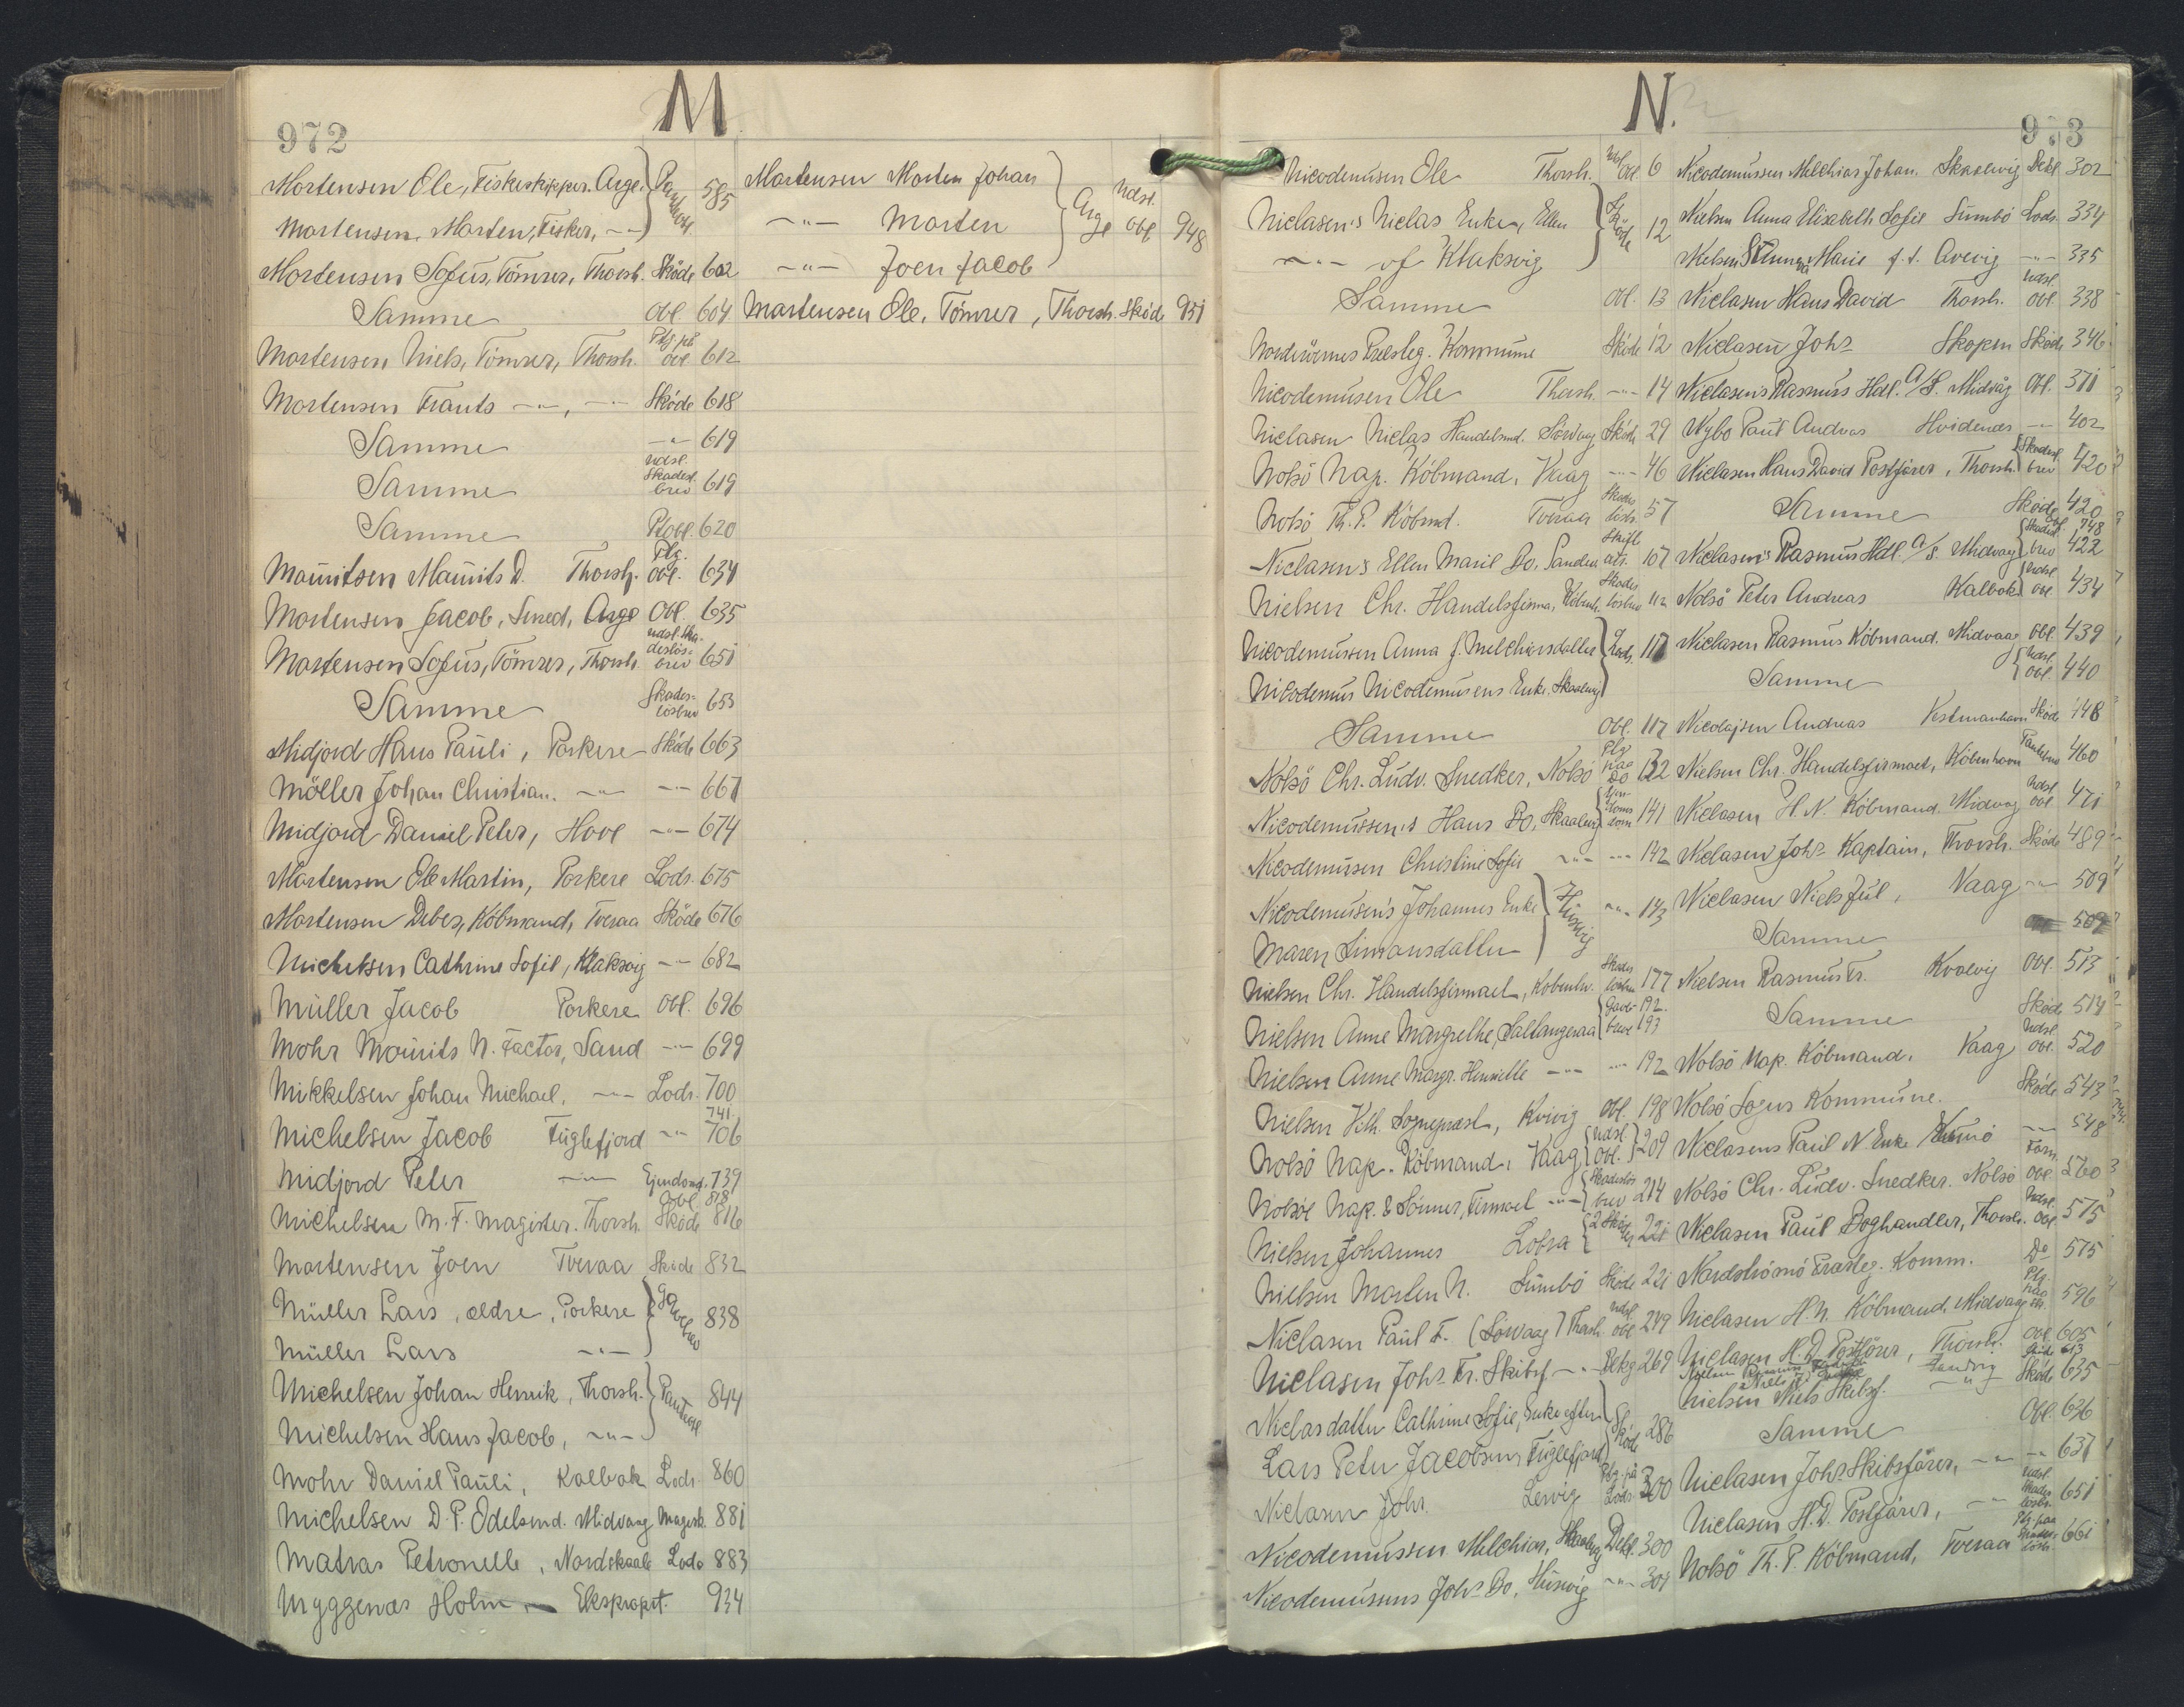 972
M
Mortensen Ole, Fiskeskipper. Arge. 585
Mortensen, Morten, Fisker, -"-
Mortensen Sofus, Tömrer, Thorsh. Sköde 602
Samme Obl. 604
Mortensen Niels, Tömrer, Thorsh. Plg på Obl 612
Mortensen Frants -"-, -"- Sköde 618
Samme -"- 619
Samme udsl. Skadesl. brev 619
Samme P.Obl. 620
Mouritsen Mourits D. Thorsh. Plg. Obl. 634
Mortensen Jacob, Smed, Arge Obl. 635
Mortensen Sofus, Tömrer, Thorsh. udsl. Skadeslös- brev 651
Samme Skades- lösbrev 653
Midjord Hans Pauli, Porkere Sköde 663
Möller Johan Christian. -"- -"- 667
Midjord Daniel Peter, Hove -"- 674
Mortensen Ole Martin, Porkere Lods. 675
Mortensen Debes, Köbmand, Tveraa Sköde 676
Michelsen Cathrine Sofie, Klaksvig -"- 682
Müller Jacob Porkere Obl. 696
Mohr Mourits N. Factor, Sand -"- 699
Mikkelsen Johan Michael, -"- Lods. 700
Michelsen Jacob Fuglefjord -"- 741. 706
Midjord Peter -"- Ejendomsd. 739
Michelsen M. F. Magister. Thorsh. Obl 818 Sköde 816
Mortensen Joen Tveraa Sköde 832
Müller Lars, ældre, Porkere Gavebrev 838
Müller Lars -"-
Michelsen Johan Henrik, Thorsh. Pantobl. 844
Michelsen Hans Jacob, -"-
Mohr Daniel Pauli, Kalbak Lods. 860
Michelsen D. P. Odelsmd. Midvaag Magesk. 881
Matras Petronelle, Nordskaale Lods 883
Myggenæs Holm, Eksproprt. 934
Mortensen Morten Johan
-"- Morten Arge Udsl. Obl 948
-"- Joen Jacob
Mortensen Ole, Tömrer, Thorsh. Sköde 951
N.
Nicodemusen Ole Thorsh. Udsl Obl 6
Niclasen's Niclas Enke, Ellen Sköde 12
-"- af Klaksvig
Samme Obl. 13
Norderöernes Præsteg. Kommune Sköde 12
Nicodemusen Ole Thorsh. -"- 14
Niclasen Niclas Handelsmd. Sörvaag Sköde 29
Nolsö Nap. Köbmand, Vaag -"- 46
Nolsö Th. P. Köbmd. Tveraa Skades lösbr. 57
Niclasen's Ellen Marie Bo, Sandur Skifte atr. 107
Nielsen Chr. Handelsfirma, Köbenh. Skades lösbrev 112
Nicodemussen Anna f. Melchiorsdatter Lods. 117
Nicodemus Nicodemusens Enke, Skaalevig
Samme Obl. 117
Nolsö Chr. Ludv. Snedker, Nolsö Plg paa Do 132
Nicodemussen's Hans Bo, Skaalevig 141
Nicodemussen Christine Sofie -"- -"- 142
Nicodemusen's Johannes Enke Husevig -"- 143
Maren Simonsdatter
Nielsen Chr. Handelsfirmaet, Köbenhv. Skades lösbrev 177
Nielsen Anne Margrethe, Saltangeraa Gave- breve 192. 193
Nielsen Anne Margr. Henriette -"- -"- 192
Nielsen Vilh. Sognepræst, Kvivig Obl. 198
Nolsö Nap. Köbmand, Vaag Udsl. Obl. 209
Nolsöe Nap. & Sönner, Firmaet -"- Skadeslös brev 214
Nielsen Johannes Lobra 2 Sköder 221
Nielsen Morten N. Sumbö Sköde 221
Niclasen Paul F. (Sörvaag) Thorsh. udsl. obl 249
Niclasen Johs Fr. Skibsf. -"- Dekg 269
Niclasdatter Cathrine Sofie, Enke efter Sköde 286
Lars Peter Jacobsen, Fuglefjord
Niclasen Johs. Lervig Plg. på Lods 300
Nicodemussen Melchior, Skaalevig Dekl. 300
Nicodemusens Johs Bo, Husevig -"- 301
Nicodemussen Melchior Johan. Skaalevig Dekl. 302
Nielsen Anna Elisabeth Sofie Sumbö Lods. 334
Nielsen Marie f. t. Arevig -"- 335
Niclasen Hans David Thorsh. Udsl. Obl. 338
Niclasen Johs Skopen Sköde 346
Niclasen's Rasmus Hdl. A/S. Midvåg Obl. 371
Nybo Paul Andreas Hvidenæs -"- 402
Niclasen Hans David Postförer, Thorsh. Skadesl. brev 420
Samme Sköde 420
Niclasen's Rasmus Hdl. A/S. Midvaag Skadesl. brev 422
Nolsö Peter Andreas Kalbak Udsl. obl 434
Niclasen Rasmus Köbmand. Midvaag Obl. 439
Samme Udsl. Obl. 440
Nicolajsen Andreas Vestmanhavn Sköde 448
Nielsen Chr. Handelsfirmaet, Köbenhavn Pantebrev 460
Niclasen H. N. Köbmand. Midvaag Udsl. obl 471
Niclasen Johs Kaptain, Thorsh. Sköde 489
Niclasen Niels Jul, Vaag -"- 509
Samme 509
Nielsen Rasmus Fr. Kvalvig Obl. 513
Samme Sköde 514
Nolsö Nap. Köbmand, Vaag Udsl. Obl. 520
Nolsö Sogns Kommune. Sköde 543
Niclasens Paul N Enke -"- 548
Nolsö Chr. Ludv. Snedker. Nolsö Obl. 560
Niclasen Paul Boghandler, Thorsh. Udsl. Obl. 575
Nordströmö Præsteg. Komm. Do 575
Niclasen H. N. Köbmand, Midvaag Plg. paa 596
Niclasen H. D. Postförer, Thorsh. Obl. 605
Nielsen Niels Skibsf. -"- Sköde 635
Samme Obl. 636
Niclasen Johs Skibsförer, -"- -"- 637
Niclasen H. D. Postförer, -"- udsl. Skades lösbr. 651
Nolsö Th. P. Köbmand, Tveraa Plg. paa Skades- lösb. 661